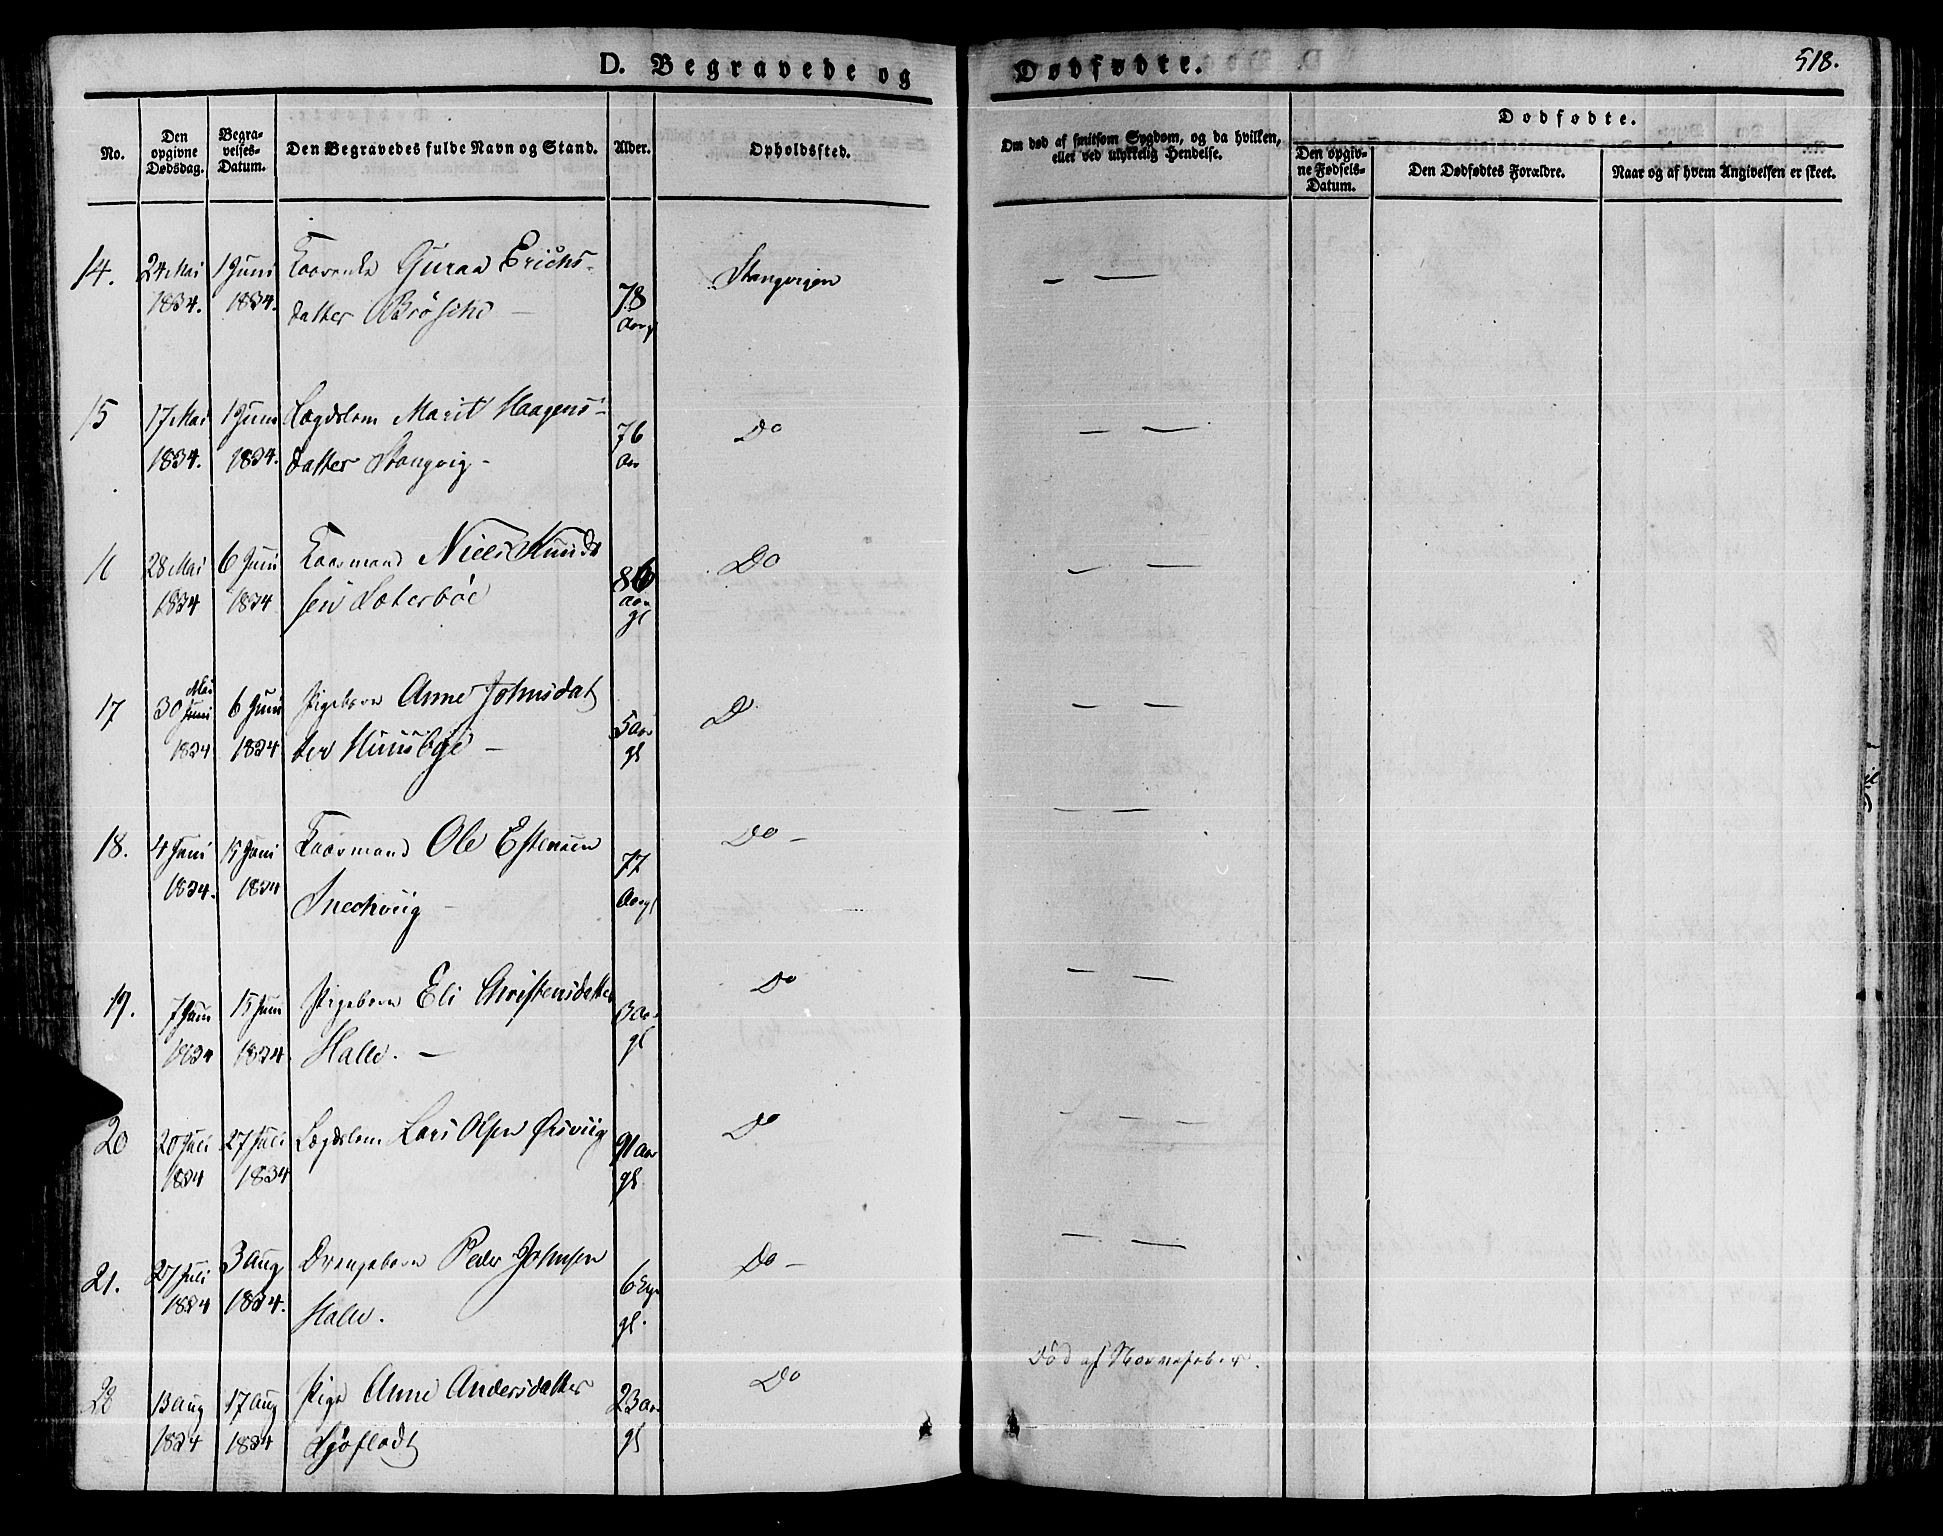 D. Begravede og Dødfødte.
518.
No.
Den opgivne Dødsdag.
Begra-
velses-
Datum.
Den Begravedes fulde Navn og Stand.
Alder.
Opholdssted.
Om død af smitsom Sygdom, og da hvilken,
eller ved ulykkelig Hendelse.
Dødfødte.
Den opgiv-
ne Fødsels-
Datum.
Den Dødfødtes Forældre.
Naar og af hvem Angivelsen er skeet.
14. 24 Mai 1 Juni Kaarenke Guraa Erichs- 78 Stangvigen — —
1834. 1834. datter Brøske — Aar gl
15 17 Mai 1 Juni Lægdslem Marit Haagens- 76 Do — —
1834. 1834. datter Stangvig - Aar
16 28 Mai 6 Juni Kaarmand Niels Knud 86 Do — —
1834 1834 sen Sæterbøe Aar gl
17 30 Mai Juni 6 Juni Pigebarn Anne Johnsdat 5 Aar D — —
1834 1834 ter Huusbye — gl
18. 4 Juni 15 Juni Kaarmand Ole Estensen 77 Do — — —
1834. 1834 Snechvig — Aar gl
19. 7 Juni 15 Juni Pigebarn Eli Christensdatter 3 Aar Do — —
1834 1834 Halle. — gl
20 20 Juli 27 Juli Lægdslem Lars Olsen Ørsviig 91 Aar Do — — —
1834 1834 gl
21. 27 Juli 3 Aug Drengebarn Peder Johnsen 6 Do — — —
1834 1834. Halle. gl.
22 13 Aug 17 Aug Pige Anne Andersdatter 23 Aar Do død af Nervefeber.
1834 1834 Sjøflodt gl